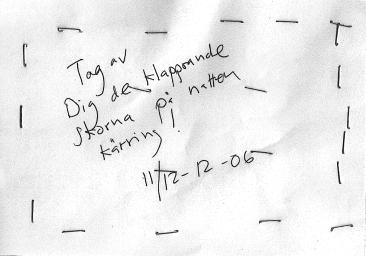 Tag av
Dig de klapprande
skorna på natten
kärring!
11/12-12-06